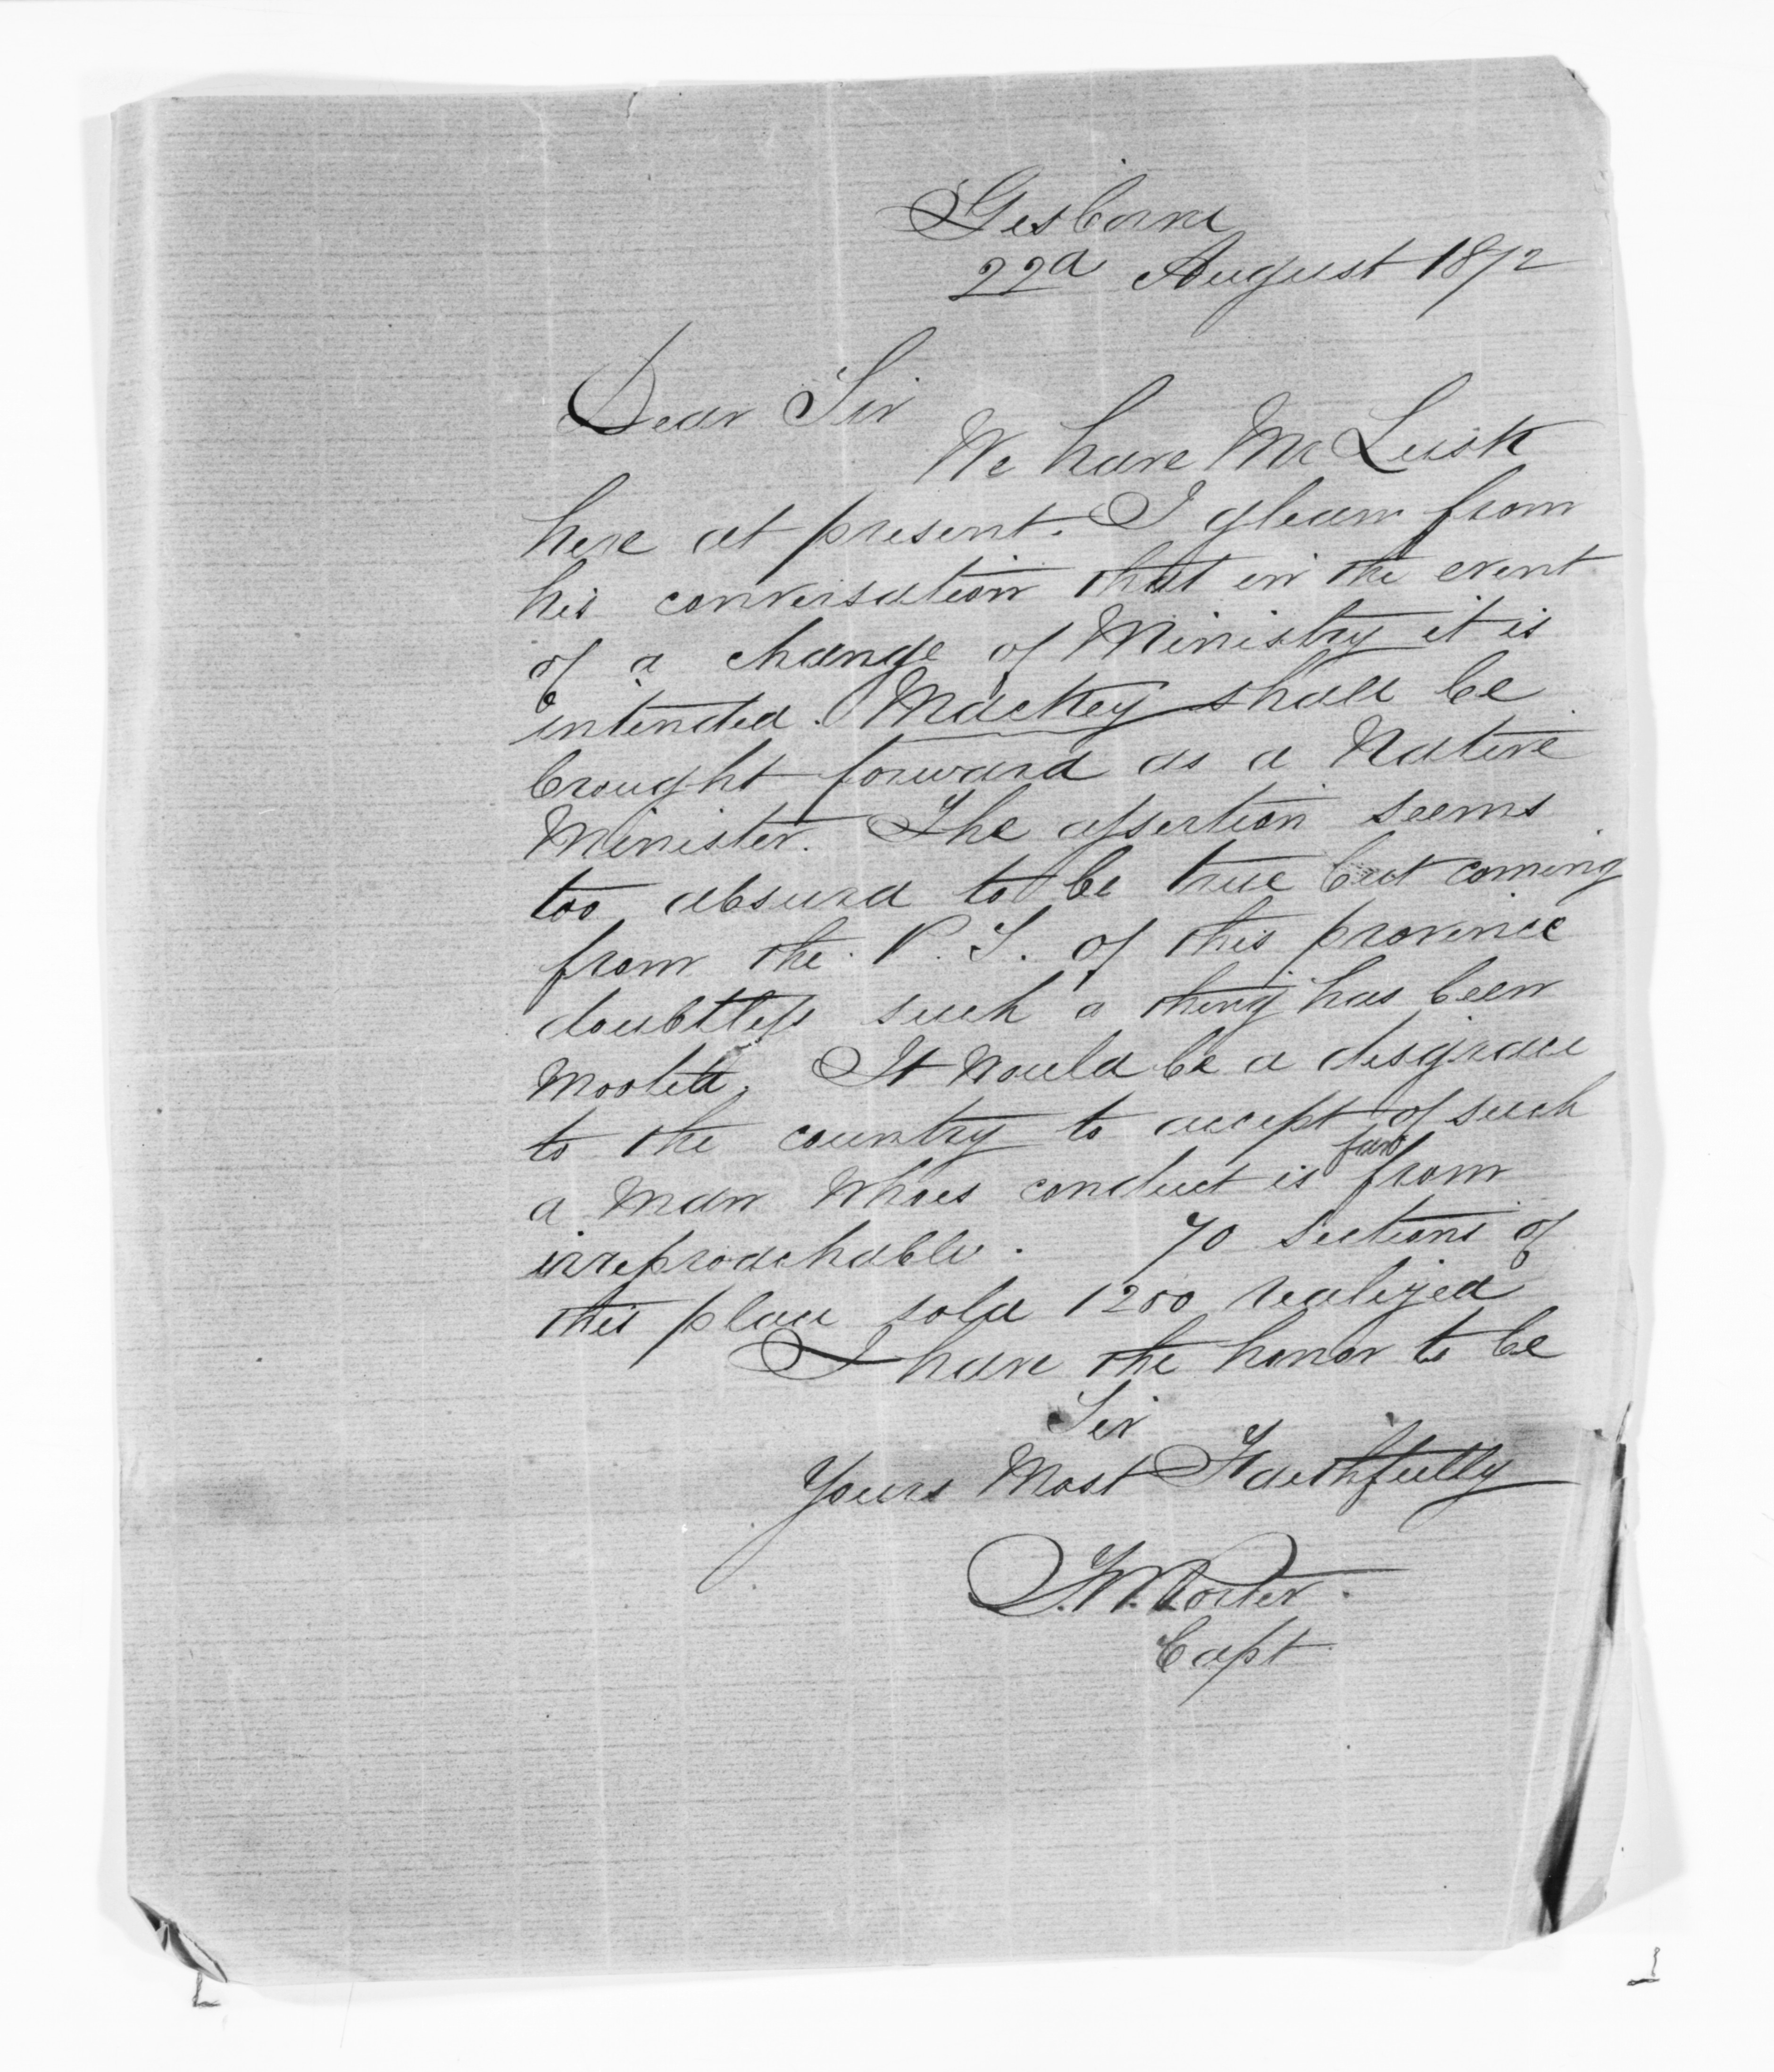 Gisborne
22d August 1872
Dear Sir
We have Mr Lusk
here at present. I glean from
his conversation that in the event
of a change of Ministry it is
intended Mackey shall be
brought forward as a Native
Minister. The assertion seems
too absurd to be true but coming
from the P. S. of this province
doubtless such a thing has been
mooted. It would be a disgrace
to the country to accept of such
a man whoes conduct is far from
irreproachable. 70 sections of
this place sold 1200 realized
I have the honor to be
Sir
Yours Most Faithfully
T.W. Porter.
Capt